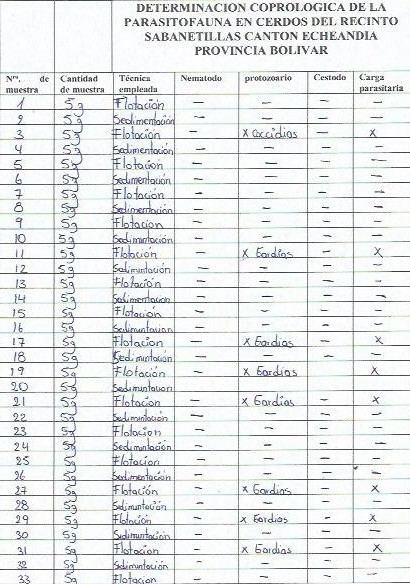 DETERMINACION COPROLOGICA DE LA
PARASITOFAUNA EN CERDOS DEL RECINTO
SABANETILLAS CANTON ECHEANDIA
PROVINCIA BOLIVAR
Nrº. de muestra Cantidad de muestra Técnica empleada Nematodo protozoario Cestodo Carga parasitaria
1 5g Flotación — — — —
2 5g Sedimentación — — — —
3 5g Flotación — x coccidias — x
4 5g Sedimentación — — — —
5 5g Flotación — — — —
6 5g Sedimentación — — — —
7 5g Flotación — — — —
8 5g Sedimentación — — — —
9 5g Flotacion — — — —
10 5g Sedimintación — — — —
11 5g Flotación — x Gardias — x
12 5g Sedimintación — — — —
13 5g Flotación — — — —
14 5g Sedimentacion — — — —
15 5g Flotación — — — —
16 5g Sedimuntación — — — —
17 5g Flotación — x Gardias — x
18 5g Sedimintación — — — —
19 5g Flotación — x Gardias x
20 5g Sedimintacion
21 5g Flotación — x Gardias — x
22 5g Sedimintación — — — —
23 5g Flotación — — — —
24 5g Sedimintación — — — —
25 5g Flotacion — — — —
26 5g Sedimentación — — — —
27 5g Flotación — x Gardias — x
28 5g Sedimintación — — — —
29 5g Flotación — x Gardias — x
30 5g Sidimintación — — — —
31 5g Flotacion — x Gardias — x
32 5g Sidimintación — — — —
33 5g Flotacion — — — —